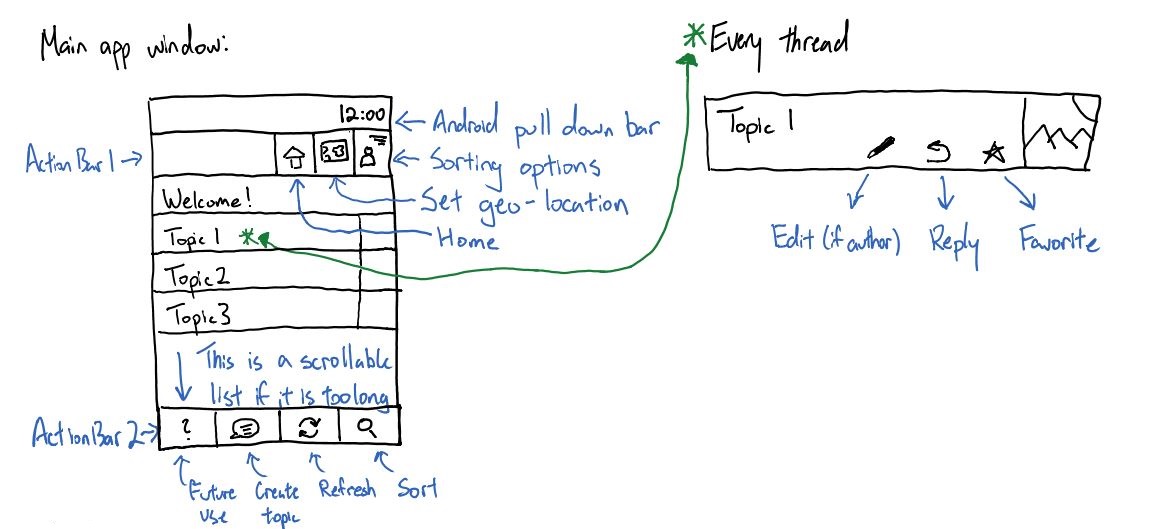 Main app window:
*Every thread
12:00
Android pull down bar
ActionBar1
Sorting options
Set geo-location
Home
Welcome!
Topic 1 *
Topic2
Topic3
This is a scrollable
list if it is too long
ActionBar 2
?
Future
use
Create
topic
Refresh
Sort
Topic 1
Edit (if author)
Reply
Favorite